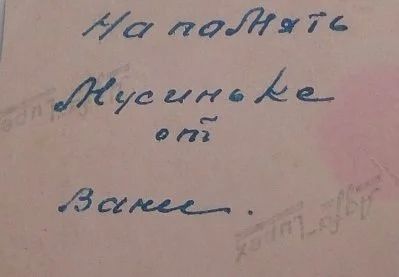 На память
Мусиньке
от
Вани.